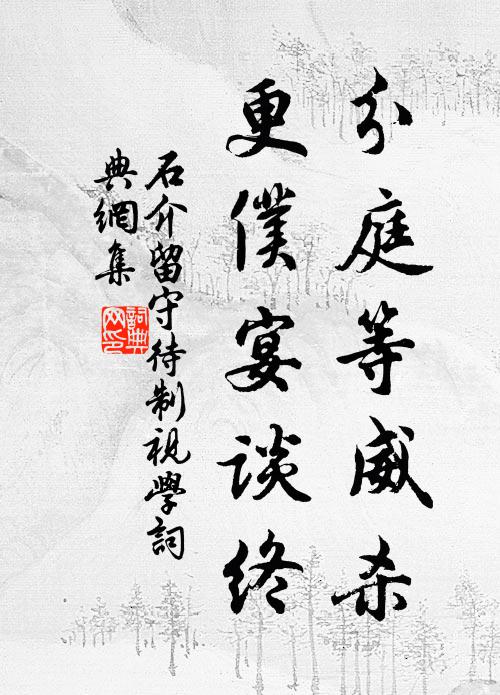 分庭等威杀
更僕宴谈终
石介留守待制視學詞
典網集
詞典
网印